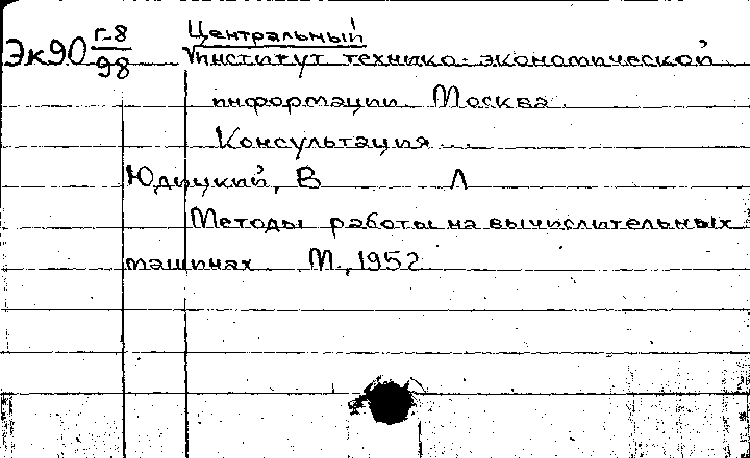 Эк90 Г-8/98
Центральный
институт технико-экономической
информации Москва
Консультация
Юдицкий, В Л
Методы работы на вычислительных
машинах М., 1952